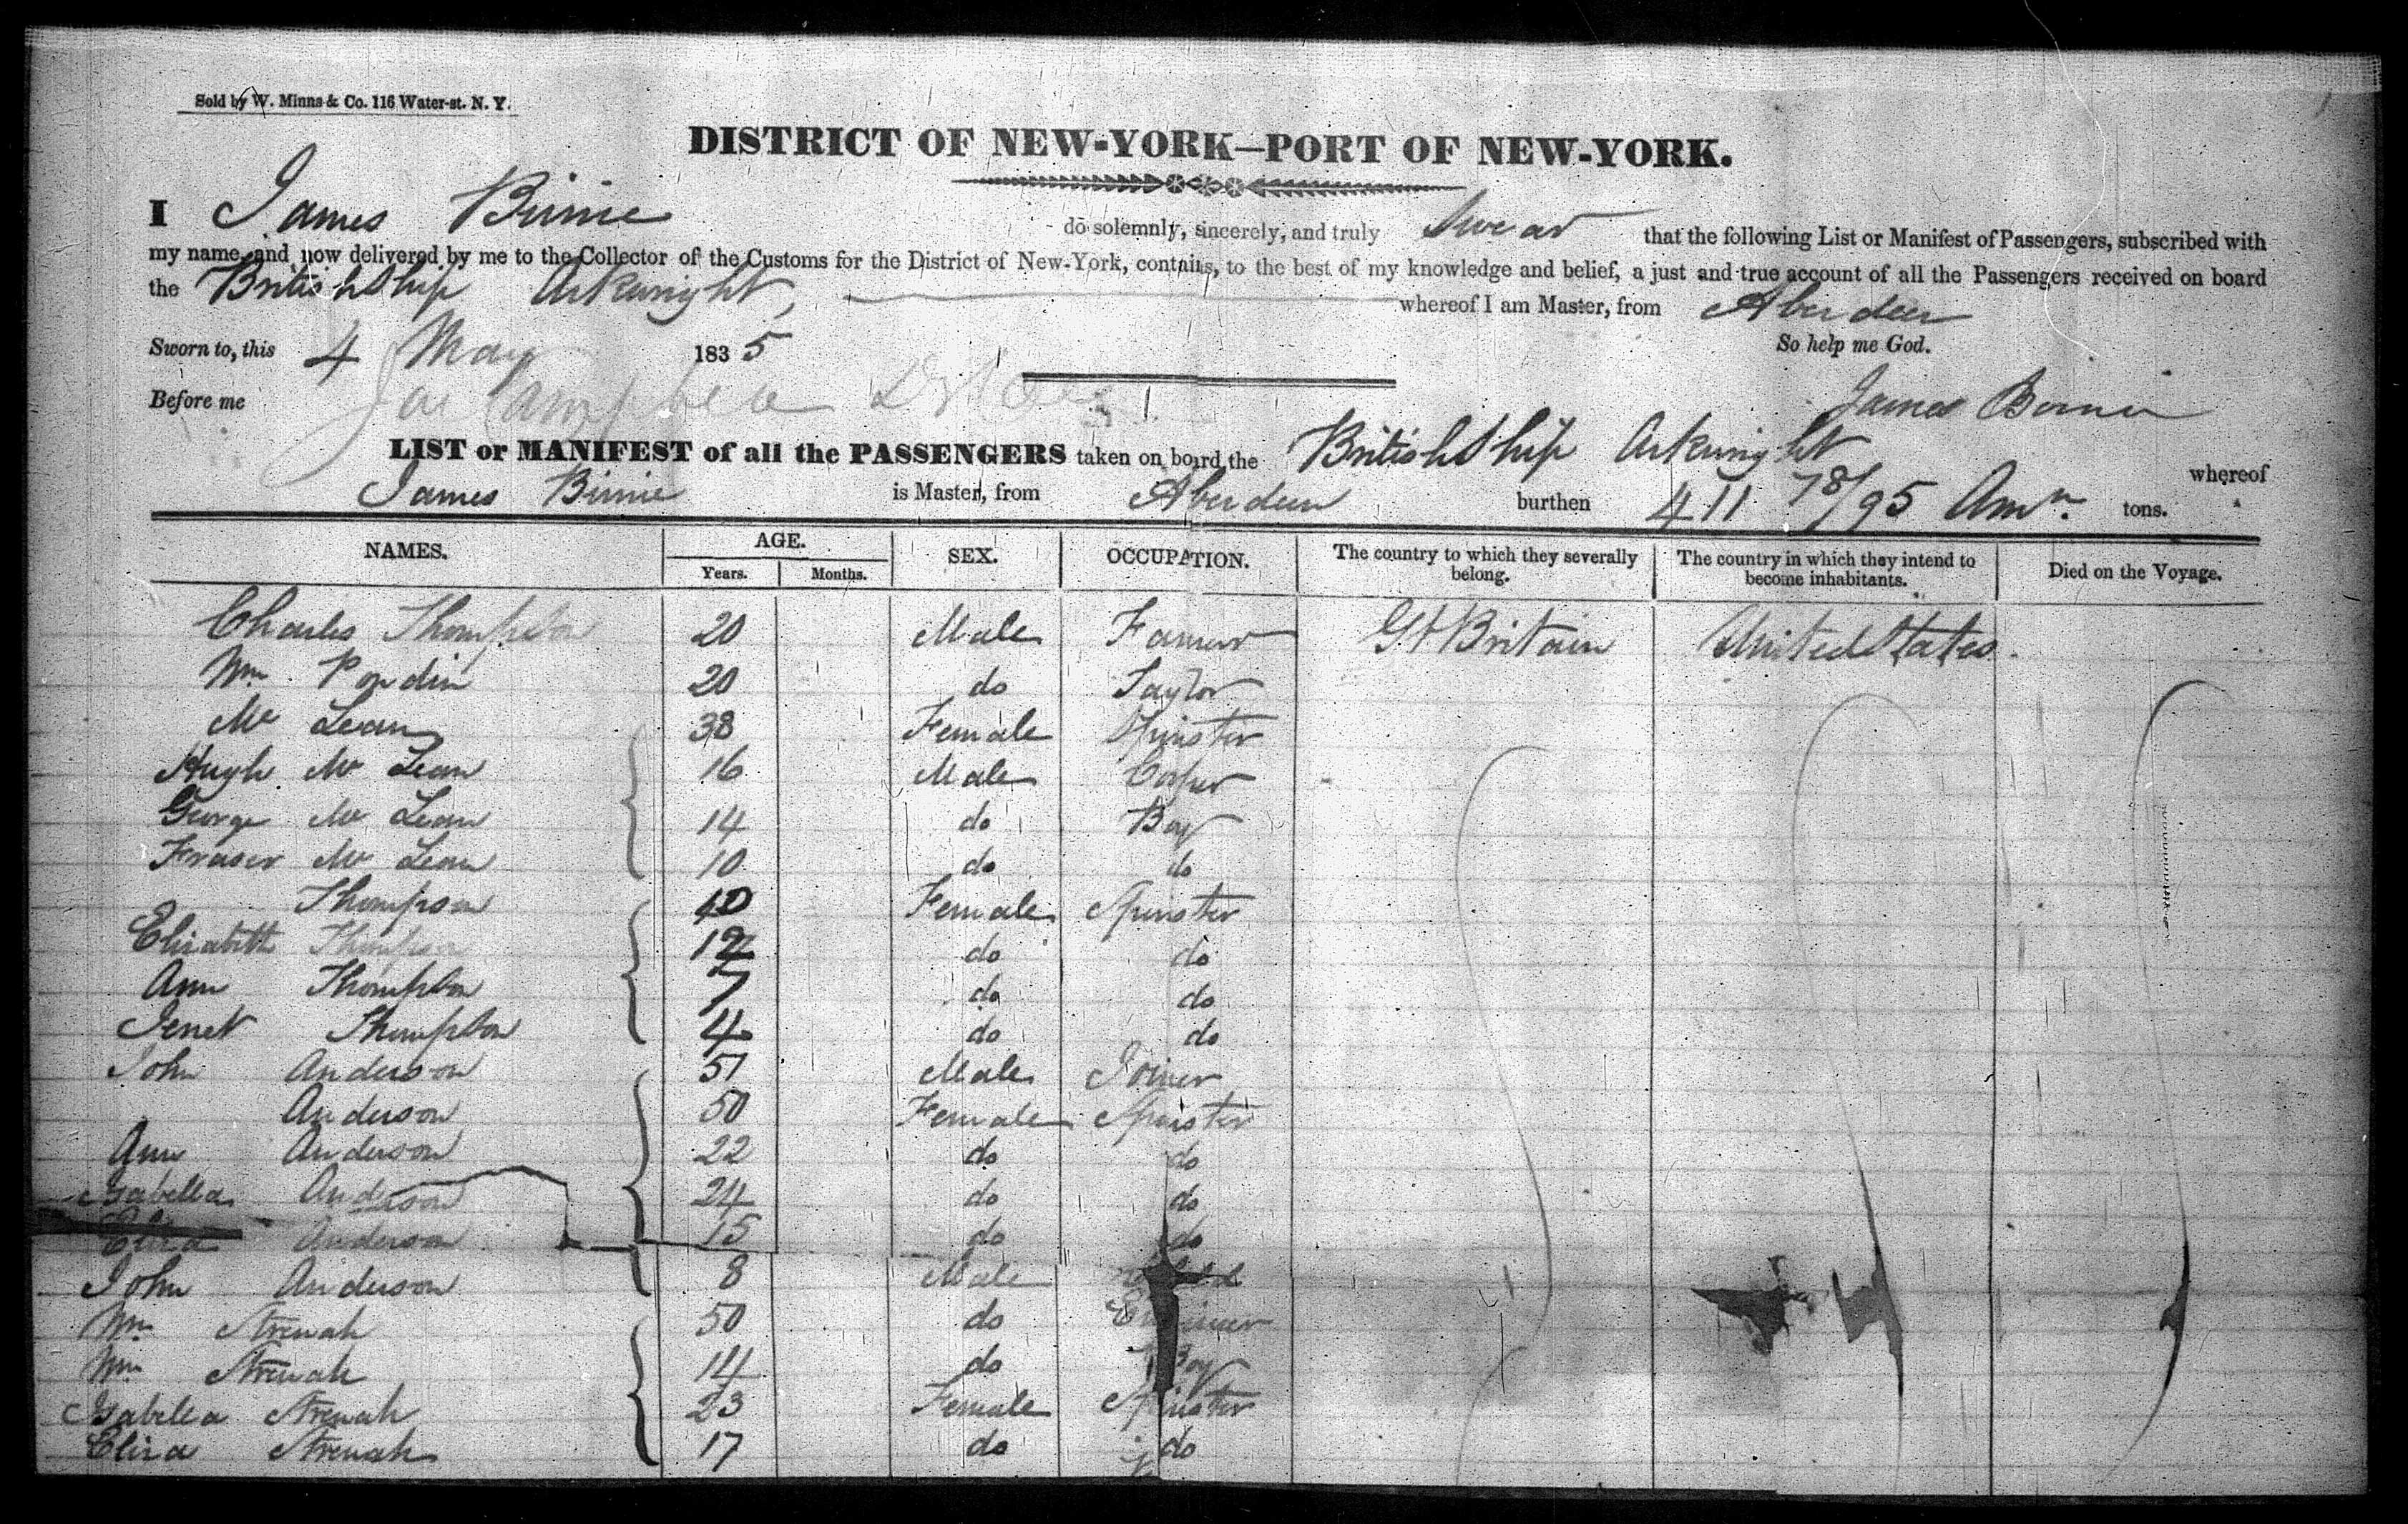 Sold by W. Minns & Co. 116 Water-st. N. Y.
DISTRICT OF NEW-YORK—PORT OF NEW-YORK.
I James Birnie do solemnly, sincerely, and truly Swear that the following List or Manifest of Passengers, subscribed with
my name, and now delivered by me to the Collector of the Customs for the District of New-York, contains, to the best of my knowledge and belief, a just and true account of all the Passengers received on board
the British Ship Arkwright whereof I am Master, from Aberdeen
Sworn to, this 4 May 1835 So help me God.
Before me James Birnie
LIST or MANIFEST of all the PASSENGERS taken on board the British Ship Arkwright whereof
James Birnie is Master, from Aberdeen burthen 411 78/95 Amn. tons.
NAMES. AGE. Years. Months. SEX. OCCUPATION. The country to which they severally belong. The country in which they intend to become inhabitants. Died on the Voyage.
Charles Thompson 20 Male Farmer Gt Britain United States
Wm 20 do Taylor
Mc Lean 38 Female Spinster
Hugh Mc Lean 16 Male Cooper
George Mc Lean 14 do Boy
Fraser Mc Lean 10 do do
Thompson 40 Female Spinster
Elizabeth Thompson 12 do do
Ann Thompson 7 do do
Jenet Thompson 4 do do
John Anderson 51 Male Joiner
Anderson 50 Female Spinster
Ann Anderson 22 do do
Isabella Anderson 24 do do
Eliza Anderson 15 do do
John Anderson 8 Male
Wm Strenah 50 do
Wm Strenah 14 do Boy
Isabella Strenah 23 Female Spinster
Eliza Strenah 17 do do